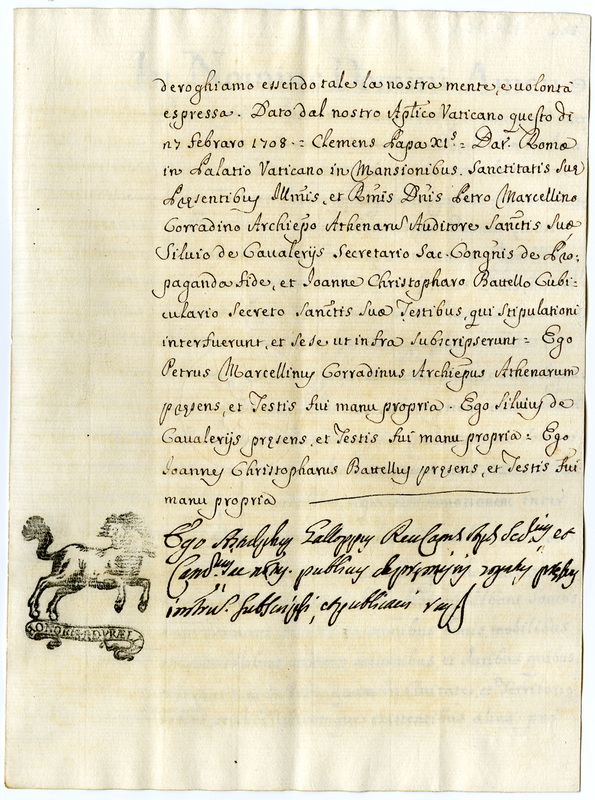 deroghiamo essendo tale la nostra mente, e volontà
espressa. Dato dal nostro Aplico Vaticano questo di
n7 febraro 1708 - Clemens Papa XIs = Dat. Romæ
in Palatio Vaticano in Mansionibus Sanctitatis Suę
Pręsentibus Illmis, et Rmis Dnis Petro Marcellino
Corradino Archiepo Athenarus Auditore Sanctis Suæ
Silvio de Cavalerijs Secretario Sac. Congnis de Pro:
paganda fide, et Ioanne Christopharo Battello Cubi:
culario Secreto Sanctis Suæ Testibus, qui stipulationi
interfuerunt, et sese ut infra subscripserunt = Ego
Petrus Marcellinus Corradinus Archiepus Athenarum
pręsens, et Testis fui manu propria. Ego Silvius de
Cavalerijs pręsens, et Testis fui manu propria = Ego
Ioannes Christopharus Battellus pręsens, et Testis fui
manu propria
Ego Galloppius et
publicus rogatus
subscripsi, et publicavi